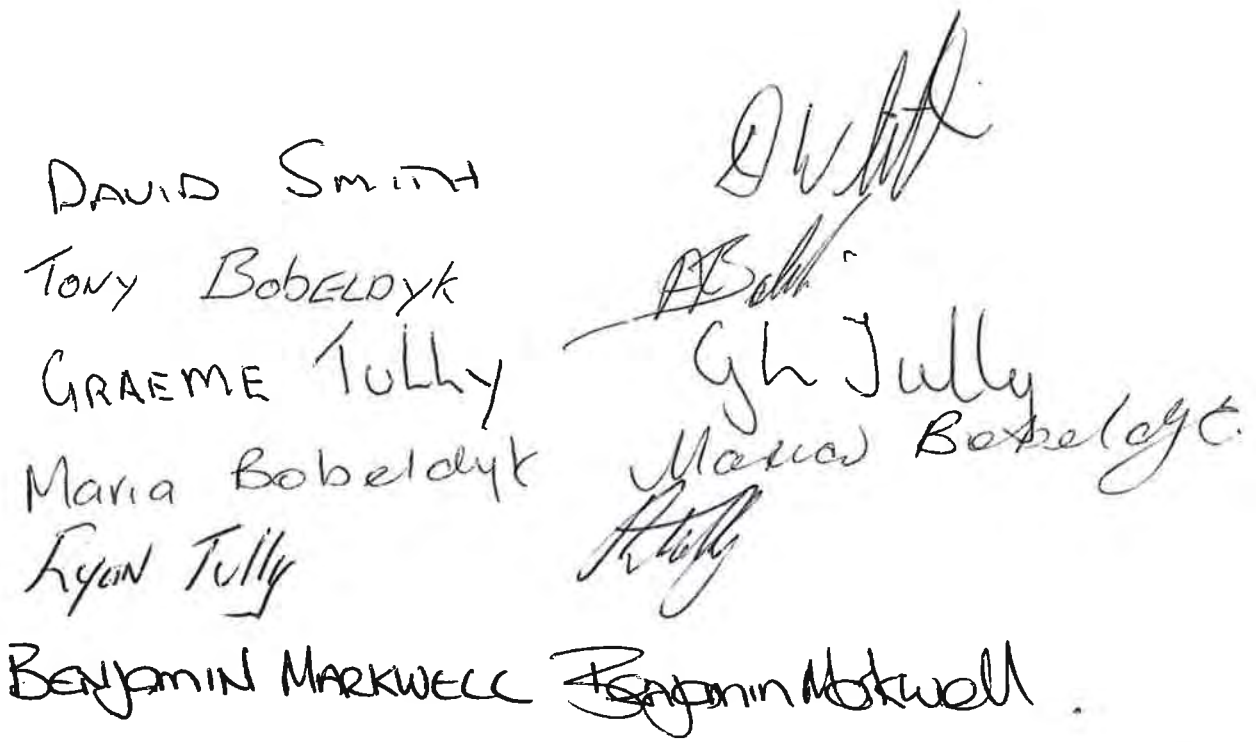 DAVID SMITH
TONY BOBELDYK
GRAEME TULLY GL Tully
Maria Bobeldyk Maria Bobeldyk.
Ryan Tully RTully
BENJAMIN MARKWELL Benjamin Markwell.